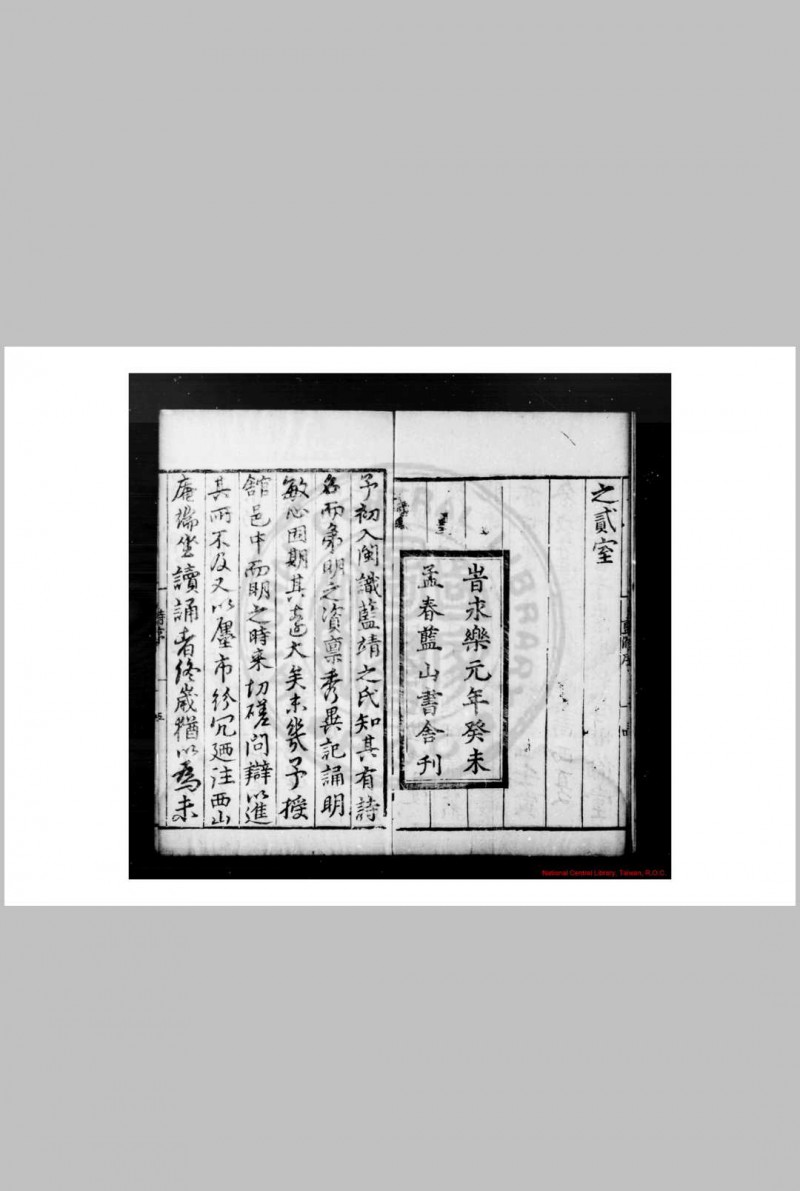 之貳室
旹永樂元年癸未
孟春藍山書舍刊
予初入閩識藍靖之氏知其有詩
名而弟明之資稟秀異記誦明
敏心固期其遠大矣未幾予授
館邑中而明之時来切磋問辯以進
其所不及又以廛市紛冗廼注西山
庵端坐讀誦者終歲猶以爲未
National Central Library, Taiwan, R.O.C.